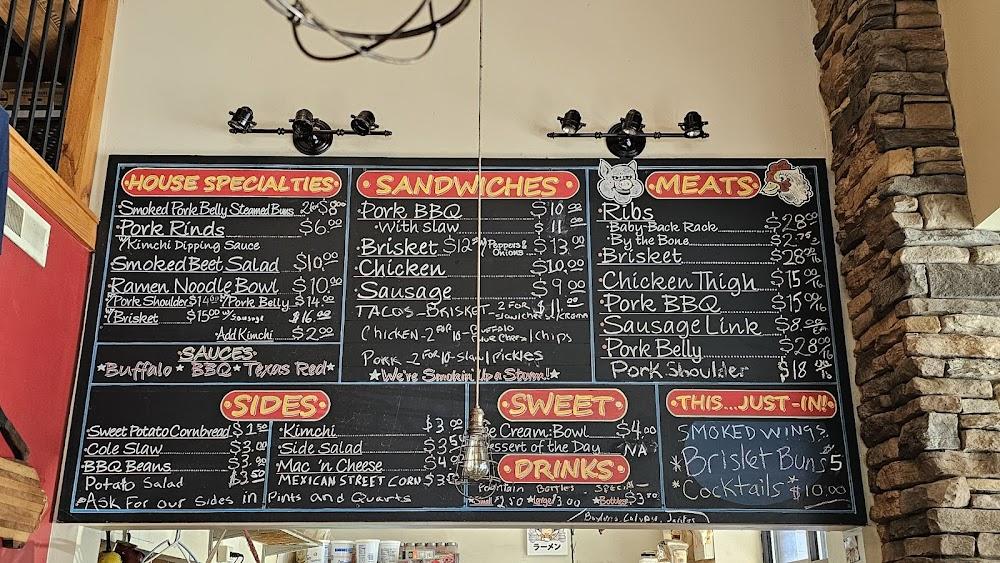 HOUSE SPECIALTIES
Smoked Pork Belly Steamed Buns 2 for $8.00
Pork Rinds $6.00
w/Kimchi Dipping Sauce
Smoked Beet Salad $10.00
Ramen Noodle Bowl $10.00
w/Pork Shoulder $14.00 w/Pork Belly $14.00
w/Brisket $15.00 w/Sausage $16.00
Add Kimchi $2.00
SAUCES
Buffalo * BBQ * Texas Red
SANDWICHES
Pork BBQ $10.00
With slaw $11.00
Brisket $12.00 w/Peppers & Onions $13.00
Chicken $10.00
Sausage $9.00
TACOS-BRISKET-2 FOR $11.00
Chicken-2 FOR 10- BUFFALO chips
Pork-2 FOR 10-slaw/pickles
We're Smokin Up a Storm!
MEATS
Ribs
Baby Back Rack $28.00
By the Bone $2.75
Brisket $28.00 lb
Chicken Thigh $15.00 lb
Pork BBQ $15.00 lb
Sausage Link $8.00 EA
Pork Belly $28.00 lb
Pork Shoulder $18 lb
SIDES
Sweet Potato Cornbread $1.50
Cole Slaw $3.00
BBQ Beans $3.50
Potato Salad $3.50
Kimchi $3.00
Side Salad $3.50
Mac 'n Cheese
MEXICAN STREET CORN
*Ask For our Sides in Pints and Quarts
SWEET
Ice Cream: Bowl $4.00
Dessert of the Day NA
DRINKS
Fountain Bottles
Small $2.50 *large $3.00 *Bottles $3.50
THIS...JUST-IN!
SMOKED WINGS
*Brisket Buns $5
*Cocktails* $10.00
ラーメン